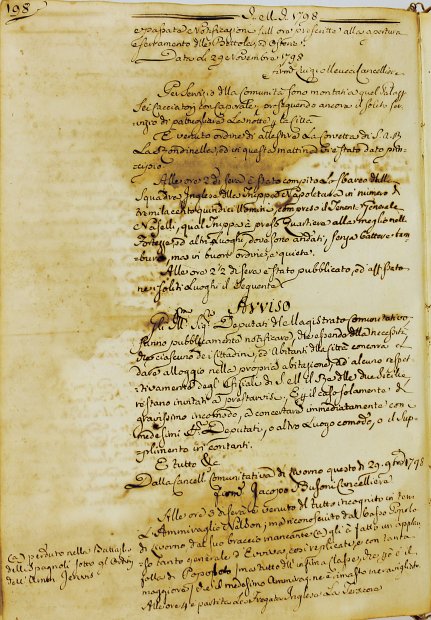 198
A. M. D. 1798
e passata notificazione sull'ore prescritte alla apertura
e serramento delle Bottole, ed Osterie
Data li 29 Novembre 1798
Luigi Cancelliere
Per servizio della Comunità sono montati a quel Palazzo
sei facciatoy con sapavale, proseguendo ancora il solito ser-
vizio di pattugliare la notte la Città
E venuto ordine di allestire la Corvetta di S. A. R.
La Rondinella, ed in questa mattina è stato dato prin-
cipio
Alle ore 2 di sera è stato compito lo sbarco della
Squadra Inglese della Truppa Napoletana in numero di
tremila cento quindici Uomini, compreso il Tenent. Generale
Naselli, qual Truppa à preso Quartiere alla meglio nelle
Fortezze, ed altri Luoghi, dove sono andati, senza battere tam-
buro, ma in buon'ordine, e quiete.
Alle ore 2 1/2 di sera è stato pubblicato, ed affisso
ne' soliti Luoghi il seguente
Avviso
Gli Ill.mi Sig.ri Deputati del Magistrato Comunitativo,
fanno pubblicamente notificare, che essendo della necessità
che ciascuno dei Cittadini, ed Abitanti della Città concorra a
dare alloggio nella propria abitazione, ad alcuno respet-
tivamente degl'Ofiziali di S. M. il Re delle due Sicilie,
restano invitati a prestarvisi. E in caso solamente di
gravissimo incomodo, a concertare immediatamente con i
medesimi Sig.ri Deputati, o altro Luogo comodo, o il sup-
plimento in contanti.
E tutto &c.
Dalla Cancell. Comunitativa di Livorno questo dì 29. 9mbre 1798
Jacopo Busoni Cancelliere
Alle ore 3 di sera è venuto del tutto incognito in Terra
L'Ammiraglio Nelson; ma riconosciuto dal basso Popolo
di Livorno dal suo braccio mancante (a) gli è fatto un applau-
so tanto generale d'Evviva, così replicate, e con tanta
folla di Popolo (ma tutto dell'infima Classe, che, ne è il
maggiore) che il medesimo Ammirag. ne è rimasto meravigliato
Alle ore 4 è partita la Fregata Inglese La Terpsicora
(a) perduto nella Battaglia
dell Spagnoli sotto gl'Ordini
dell'Amm. Jervis